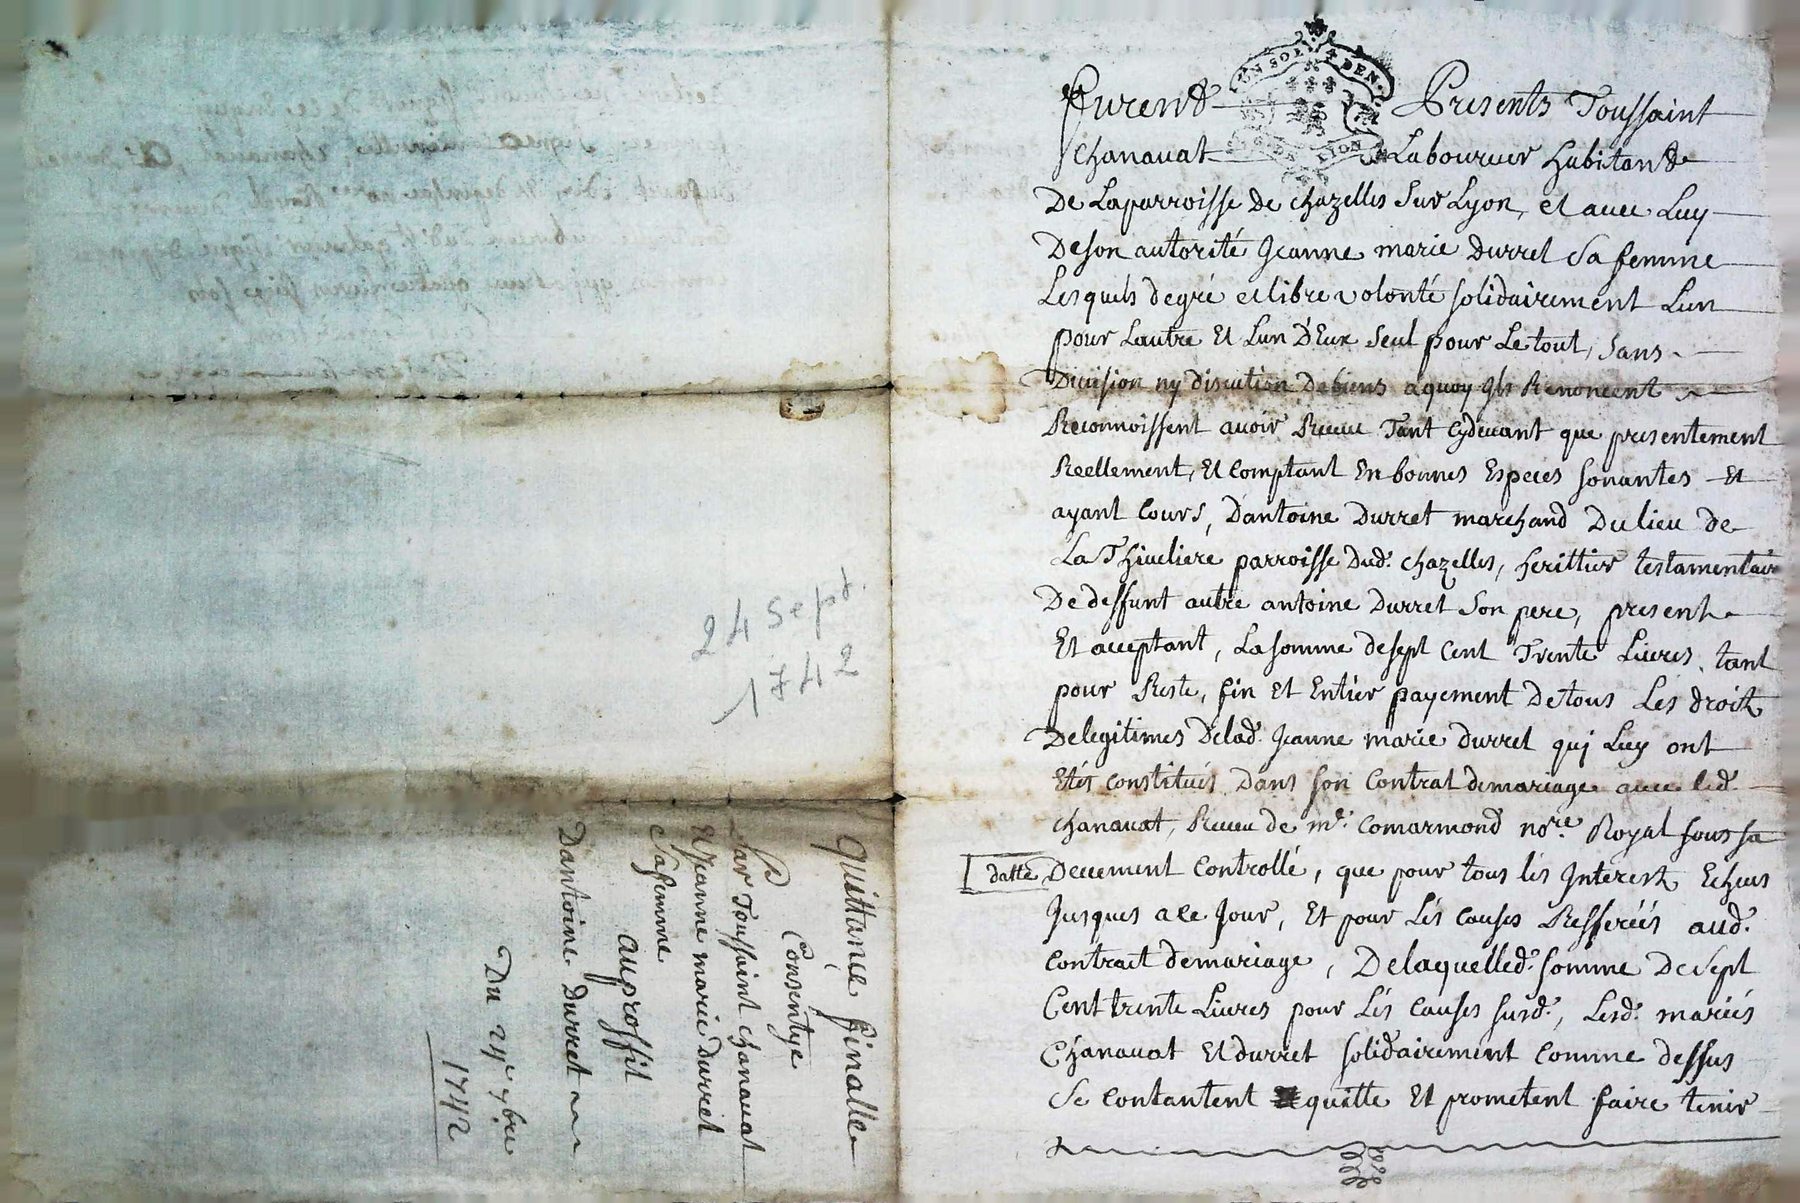 24 Sept.
1742
Quittance finalle
Consentye
Par Toussaint chanauat
Et Jeanne marie Durret
Sa femme
au proffit
Dantoine Durret
Du 24e 7bre
1742
UN SOL 4 DEN.
LION
Furend Presents Toussaint
chanauat Laboureur habitand
De Laparroisse de chazelles Sur Lyon, et auec Luy
Deson autorité Jeanne marie Durret Sa femme
Lesquels degré et libre volonté solidairement Lun
pour Lautre Et Lun D'Eux Seul pour Le tout, Sans
Diuision ny discution Debiens a quoy Ils Renoncent
Reconnoissent auoir Receu Tant Cydeuant que presentement
Reellement, Et Comptant En bonnes Especes sonantes Et
ayant Cours, Dantoine Durret marchand Du lieu de
La Thiueliere parroisse Dud. chazelles, herittier testamentaire
De deffunt autre antoine Durret Son pere, present
Et acceptant, La somme de sept Cent Trente Liures, tant
pour Reste, fin Et Entier payement De tous Les droitz
De legitimes De lad. Jeanne marie Durret qui Luy ont
Etés constitués Dans son Contrat de mariage auec led.
chanauat, Receu de me. Comarmond nore. Royal sous sa
datte Deuement Controllé, que pour tous les Interestz Echeus
Jusques a ce Jour, Et pour Les Causes Refferéés aud.
Contract de mariage, De laquelled. somme De sept
Cent trente Liures pour Les causes susd., Lesd. mariés
Chanauat Et durret solidairement Comme dessus
Se contantent quitte Et prometent faire tenir